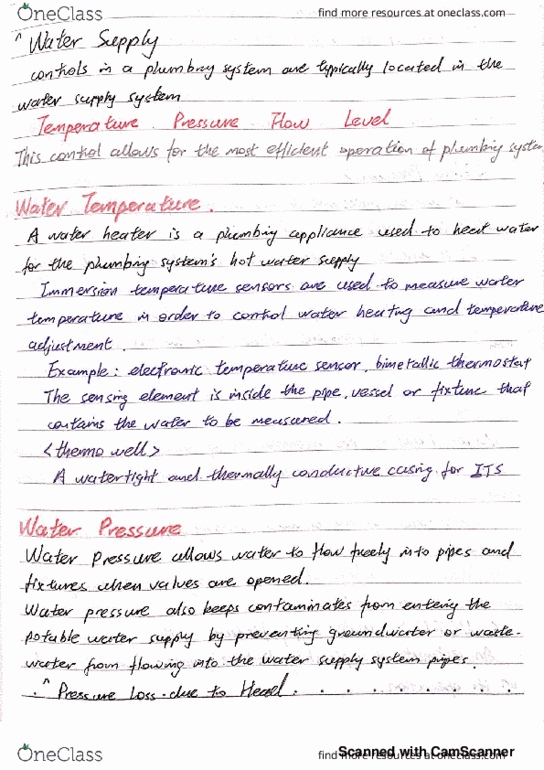 OneClass
find more resources at oneclass.com
^ Water Supply
controls in a plumbing system are typically located in the
water supply system
Temperature Pressure Flow Level
This control allows for the most efficient operation of plumbing syste
Water Temperature.
A water heater is a plumbing appliance used to heat water
for the plumbing system's hot water supply
Immersion temperature sensors are used to measure water
temperature in order to control water heating and temperature
adjustment.
Example: electronic temperature sensor, bimetallic thermostat
The sensing element is inside the pipe, vessel or fixture that
contains the water to be measured.
<thermo well>
A watertight and thermally conductive casing for ITS
Water Pressure
Water pressure allows water to flow freely into pipes and
fixtures when valves are opened.
Water pressure also keeps contaminates from entering the
potable water supply by preventing groundwater or waste-
water from flowing into the water supply system pipes.
^ Pressure Loss due to Head
OneClass
find more resources at oneclass.com
Scanned with CamScanner